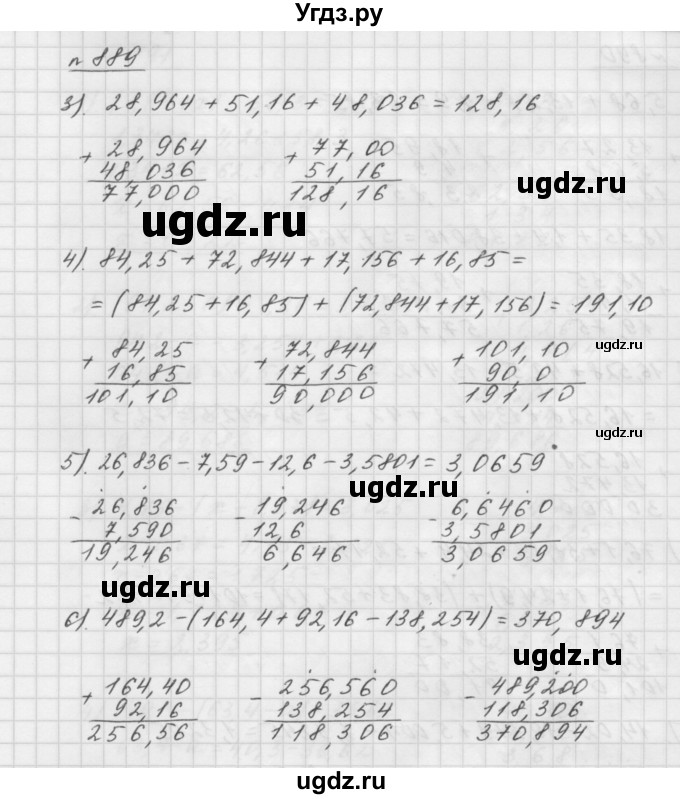 Угдз.ру
n 889
3). 28,964 + 51,16 + 48,036 = 128,16
+ 28,964 + 77,00
48,036 51,16
77,000 128,16
ugdz.ru
ugdz.ru
4). 84,25 + 72,844 + 17,156 + 16,85 =
= (84,25 + 16,85) + (72,844 + 17,156) = 191,10
ugdz.ru
+ 84,25 + 72,844 + 101,10
16,85 17,156 90,0
101,10 90,000 191,10
5). 26,836 - 7,59 - 12,6 - 3,5801 = 3,0659
ugdz.ru
ugdz.ru
- 26,836 - 19,246 - 6,6460
7,590 12,6 3,5801
19,246 6,646 3,0659
ugdz.ru
6). 489,2 - (164,4 + 92,16 - 138,254) = 370,894
ugdz.ru
+ 164,40 - 256,560 - 489,200
92,16 138,254 118,306
256,56 118,306 370,894
ugdz.ru
ugdz.ru